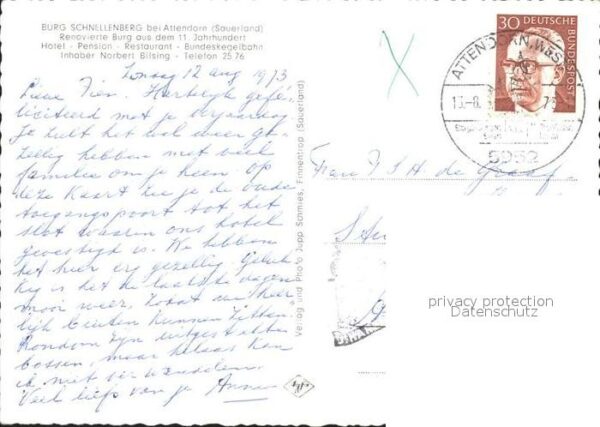 BURG SCHNELLENBERG bei Attendorn (Sauerland)
Renovierte Burg aus dem 11. Jahrhundert
Hotel - Pension - Restaurant - Bundeskegelbahn
Inhaber Norbert Bilsing - Telefon 25 76
Zondag 12 aug 1973
Lieve Tien, Hartelijk gefe-
liciteerd met je verjaardag.
Je zult het wel weer ge-
zellig hebben met veel
families om je heen. Op
deze kaart zie je de oude
toegangspoort tot het
slot waarin ons hotel
gevestigd is. We hebben
het hier erg gezellig. Geluk-
kig is het de laatste dagen
mooi weer, zodat we heer-
lijk buiten kunnen zitten.
Rondom zijn uitgestrekte
bossen, maar helaas kan
ik niet wandelen.
Veel liefs van je Annie
Verlag und Photo Jupp Schmies, Finnentrop (Sauerland)
Agfa
30 DEUTSCHE BUNDESPOST
ATTENDORN, WESTF
5952
Frau J S H. de Graaf
privacy protection
Datenschutz